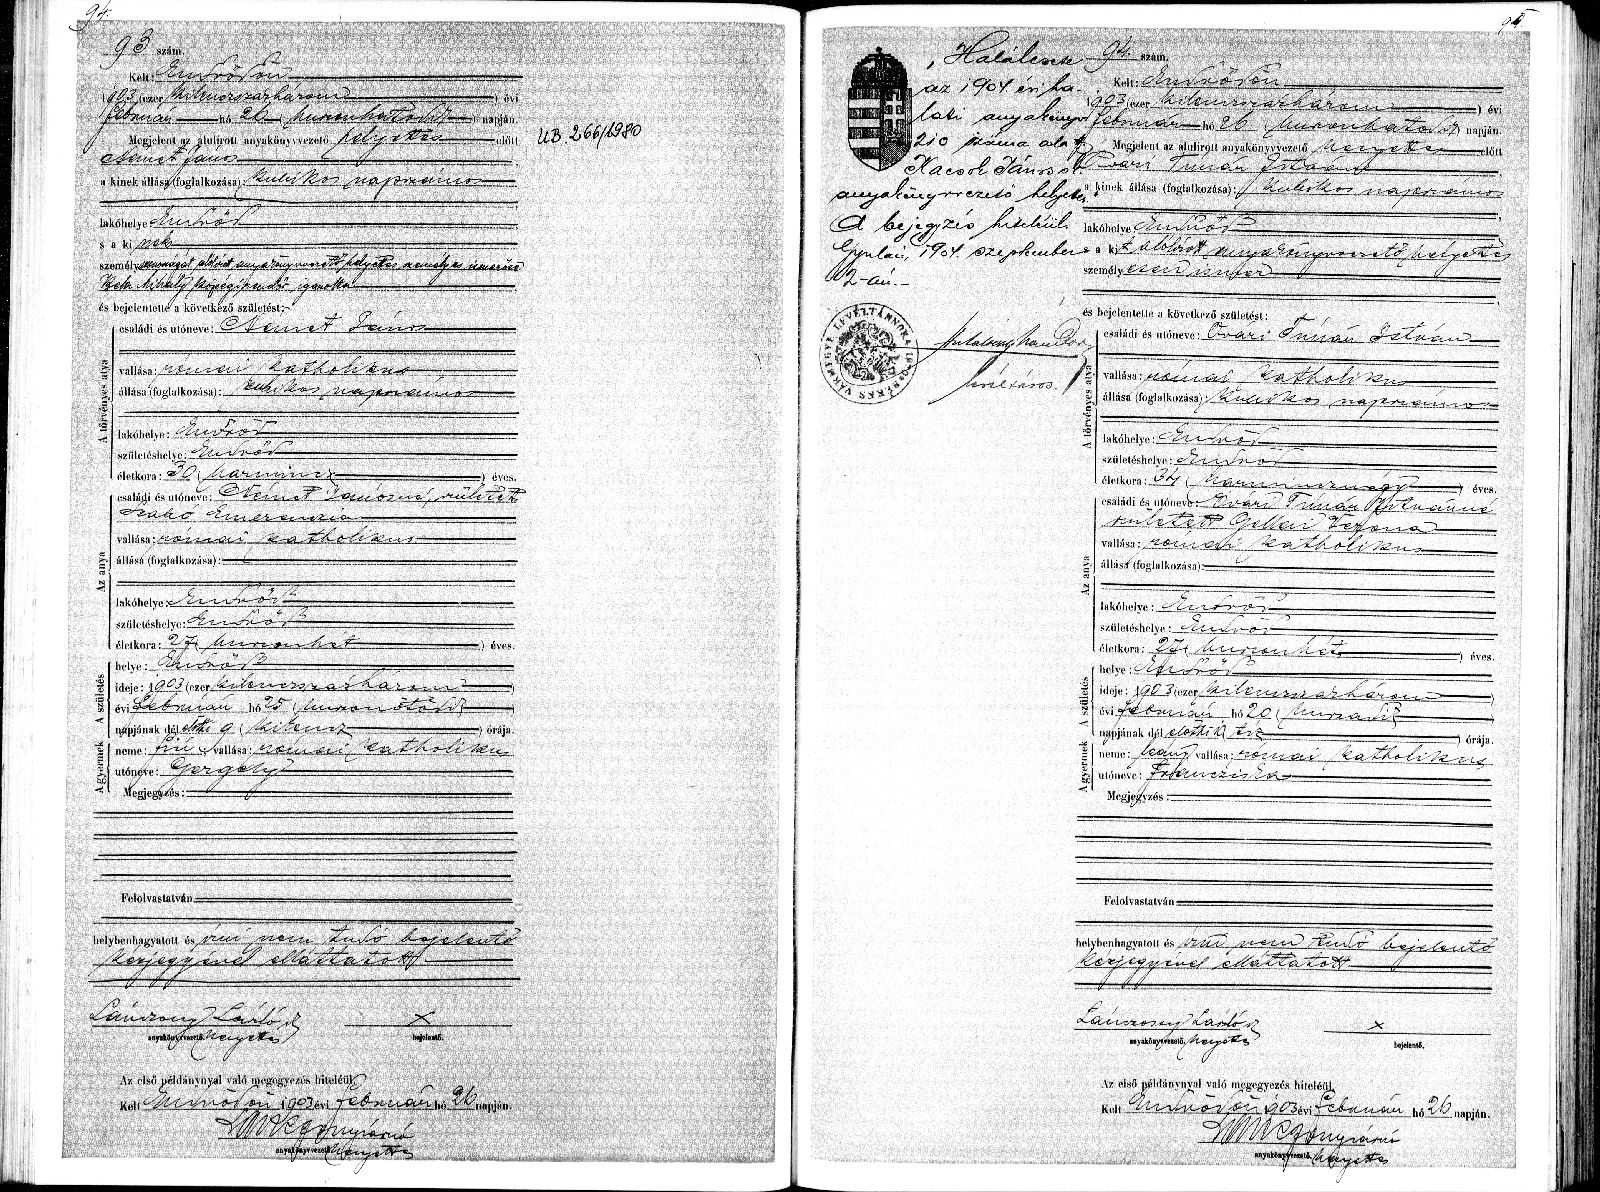 94.
93 szám.
Kelt: Endrődön
1903 (ezer kilenczszázhárom) évi
február hó 26 (huszonhatodik) napján.
Megjelent az alulirott anyakönyvvezető helyettes előtt
Német János
a kinek állása (foglalkozása): kubikos napszámos
lakóhelye Endrőd
s a kinek
személyazonosságát alólirott anyakönyvvezető helyettes személyes ismerőse
Mihály községi rendőr igazolta
és bejelentette a következő születést:
A törvényes atya
családi és utóneve: Német János
vallása: római katholikus
állása (foglalkozása): kubikos napszámos
lakóhelye: Endrőd
születéshelye: Endrőd
életkora: 30 (harmincz) éves.
Az anya
családi és utóneve: Német Jánosné, született
Szabó Emerenczia
vallása: római katholikus
állása (foglalkozása):
lakóhelye: Endrőd
születéshelye: Endrőd
életkora: 27 (huszonhét) éves.
A születés
helye: Endrőd
ideje: 1903 (ezer kilenczszázhárom)
évi február hó 25 (huszonötödik)
napjának dél előtti 9 (kilencz) órája.
A gyermek
neme: fiú vallása: római katholikus
utóneve: Gergely
Megjegyzés:
Felolvastatván
helybenhagyatott és írni nem tudó bejelentő
kézjegyével elláttatott.
László
anyakönyvvezető. helyettes
x
bejelentő.
Az első példánynyal való megegyezés hiteléül
Kelt Endrődön 1903 évi február hó 26 napján.
anyakönyvvezető. helyettes
UB. 266/1980
95
Halálesete
az 1904 évi ha-
láti anyakönyv
210 száma alatt
Kacsok János
anyakönyvvezető helyettes
A bejegyzés hiteléül
Gyulán, 1904. szeptember
2-án.
BÉKÉS VÁRMEGYE LEVÉLTÁRNOKA
levéltáros.
94. szám.
Kelt: Endrődön
1903 (ezer kilenczszázhárom) évi
február hó 26 (huszonhatodik) napján.
Megjelent az alulirott anyakönyvvezető helyettes előtt
Óvári Timár István
a kinek állása (foglalkozása): kubikos napszámos
lakóhelye Endrőd
s a kit alólirott anyakönyvvezető helyettes
személyesen ismer
és bejelentette a következő születést:
A törvényes atya
családi és utóneve: Óvári Timár István
vallása: római katholikus
állása (foglalkozása): kubikos napszámos
lakóhelye: Endrőd
születéshelye: Endrőd
életkora: 34 (harmincznégy) éves.
Az anya
családi és utóneve: Óvári Timár Istvánné
született Gellai Verona
vallása: római katholikus
állása (foglalkozása):
lakóhelye: Endrőd
születéshelye: Endrőd
életkora: 27 (huszonhét) éves.
A születés
helye: Endrőd
ideje: 1903 (ezer kilenczszázhárom)
évi február hó 20 (huszadik)
napjának dél előtti tíz órája.
A gyermek
neme: leány vallása: római katholikus
utóneve: Francziska
Megjegyzés:
Felolvastatván
helybenhagyatott és írni nem tudó bejelentő
kézjegyével elláttatott
László
anyakönyvvezető. helyettes
x
bejelentő.
Az első példánynyal való megegyezés hiteléül
Kelt Endrődön 1903 évi február hó 26 napján.
anyakönyvvezető. helyettes